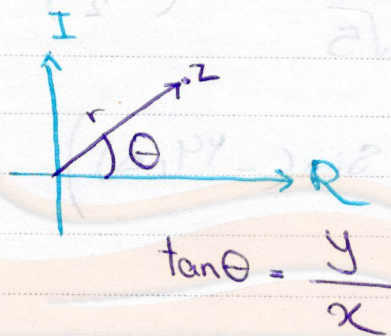 I
r
z
θ
R
tanθ = y/x